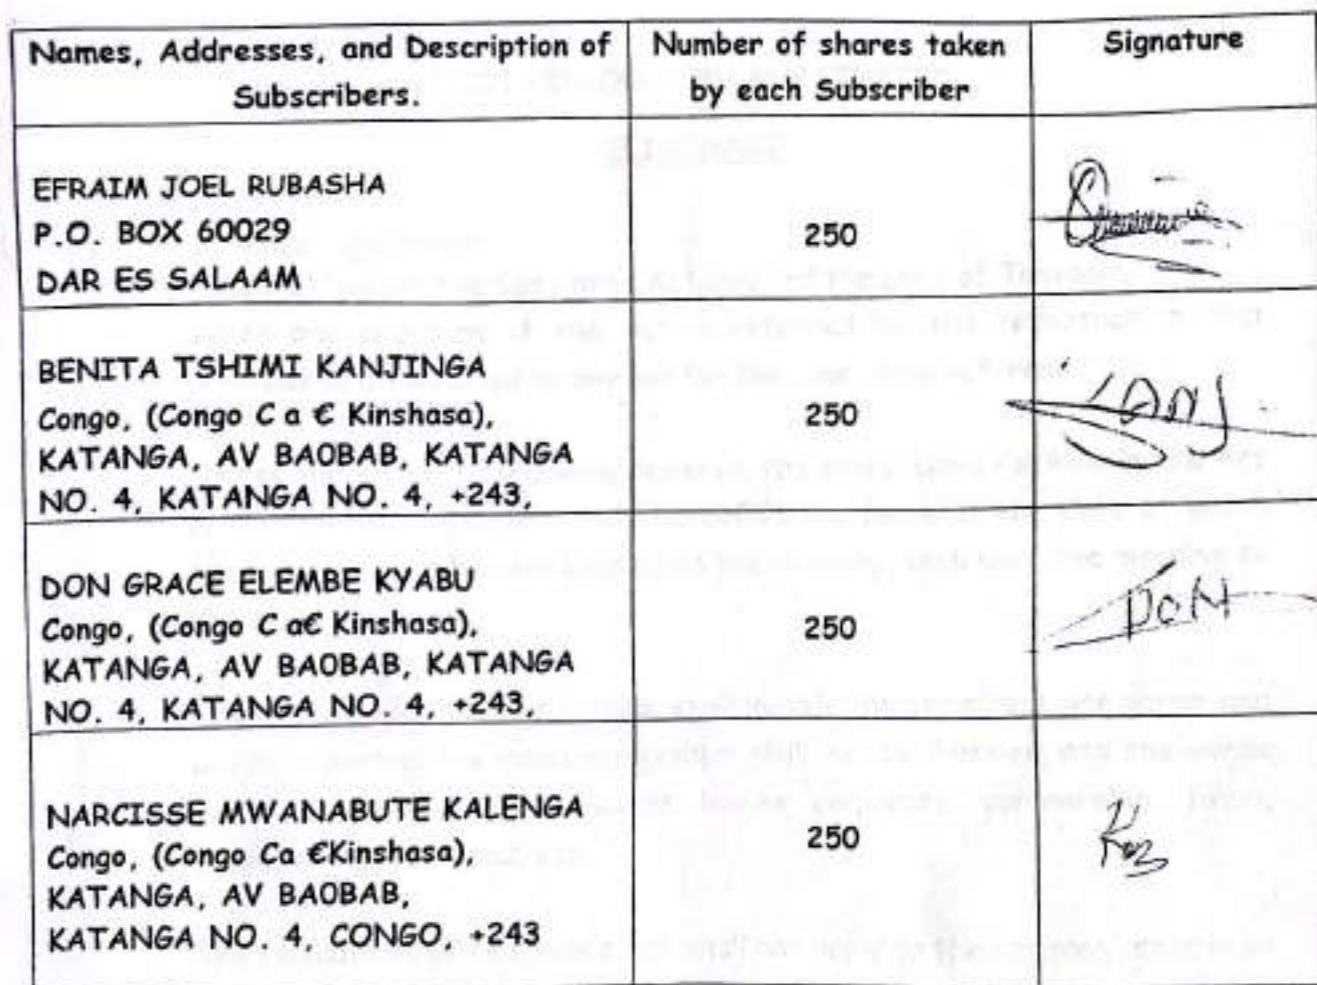 Names, Addresses, and Description of
Subscribers.
Number of shares taken
by each Subscriber
Signature
EFRAIM JOEL RUBASHA
P.O. BOX 60029
DAR ES SALAAM
250
BENITA TSHIMI KANJINGA
Congo, (Congo C a € Kinshasa),
KATANGA, AV BAOBAB, KATANGA
NO. 4, KATANGA NO. 4, +243,
250
DON GRACE ELEMBE KYABU
Congo, (Congo C a€ Kinshasa),
KATANGA, AV BAOBAB, KATANGA
NO. 4, KATANGA NO. 4, +243,
250
DON
NARCISSE MWANABUTE KALENGA
Congo, (Congo Ca €Kinshasa),
KATANGA, AV BAOBAB,
KATANGA NO. 4, CONGO, +243
250